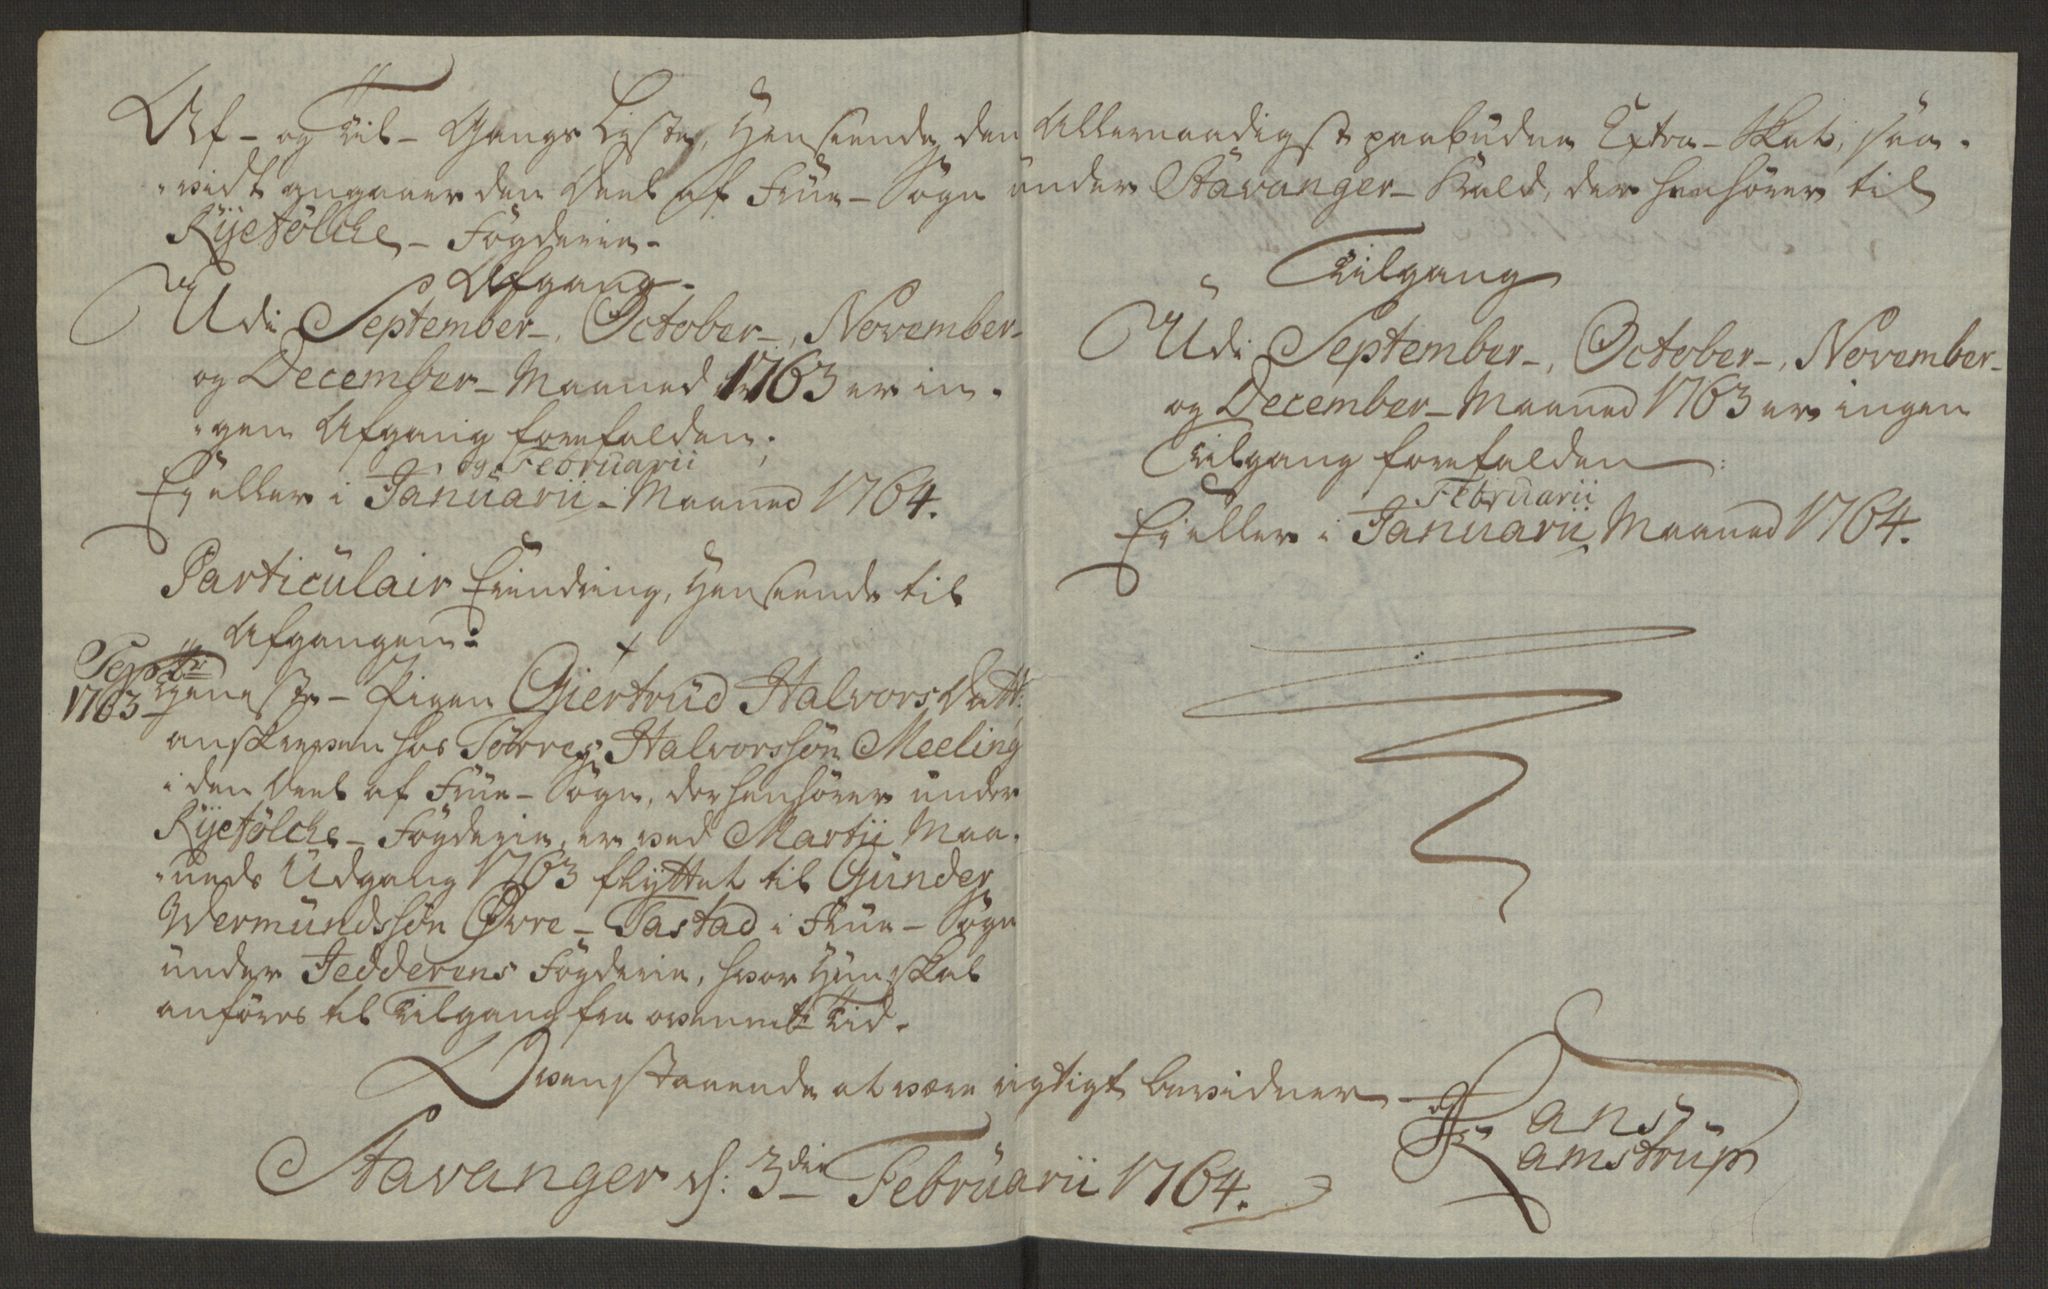 Af- og Til- Gangs Liste, Henseende den Allernaadigst paabudne Extra- Skat, saa-
-vidt angaaer den Deel af Frue- Sogn under Stavanger- Kald, der henhører til
Ryefølche- Fögderie-
Afgang-
Udi September-, October-, November-
og December- Maaned 1763 er in-
-gen Afgang forefalden;
og Februarii
Ej eller i Januarii- Maaned 1764.
Particulair Erindring, Henseende til
Afgangen:
Septbr 1763
Tieneste- Pigen Giertrud Halvors Datt:
anskreven hos Törres Halvorssön Meeling
i den Deel af Frue- Sogn, der henhører under
Ryefølche- Fögderie, er ved Martii Maa-
-neds Udgang 1763 flyttet til Gunder
Wermundssön Øvre- Tastad i Frue- Sogn
under Jedderens Fögderie, hvor Hun skal
anføres til Tilgang fra ovenmte Tid.
Tilgang
Udi September-, October-, November-
og December- Maaned 1763 er ingen
Tilgang forefalden:
Februarii
Ej eller i Januarii Maaned 1764.
Ovenstaaende at være rigtigt bevidner
Stavanger d: 3die Februarii 1764.
Hans
Ramstrup